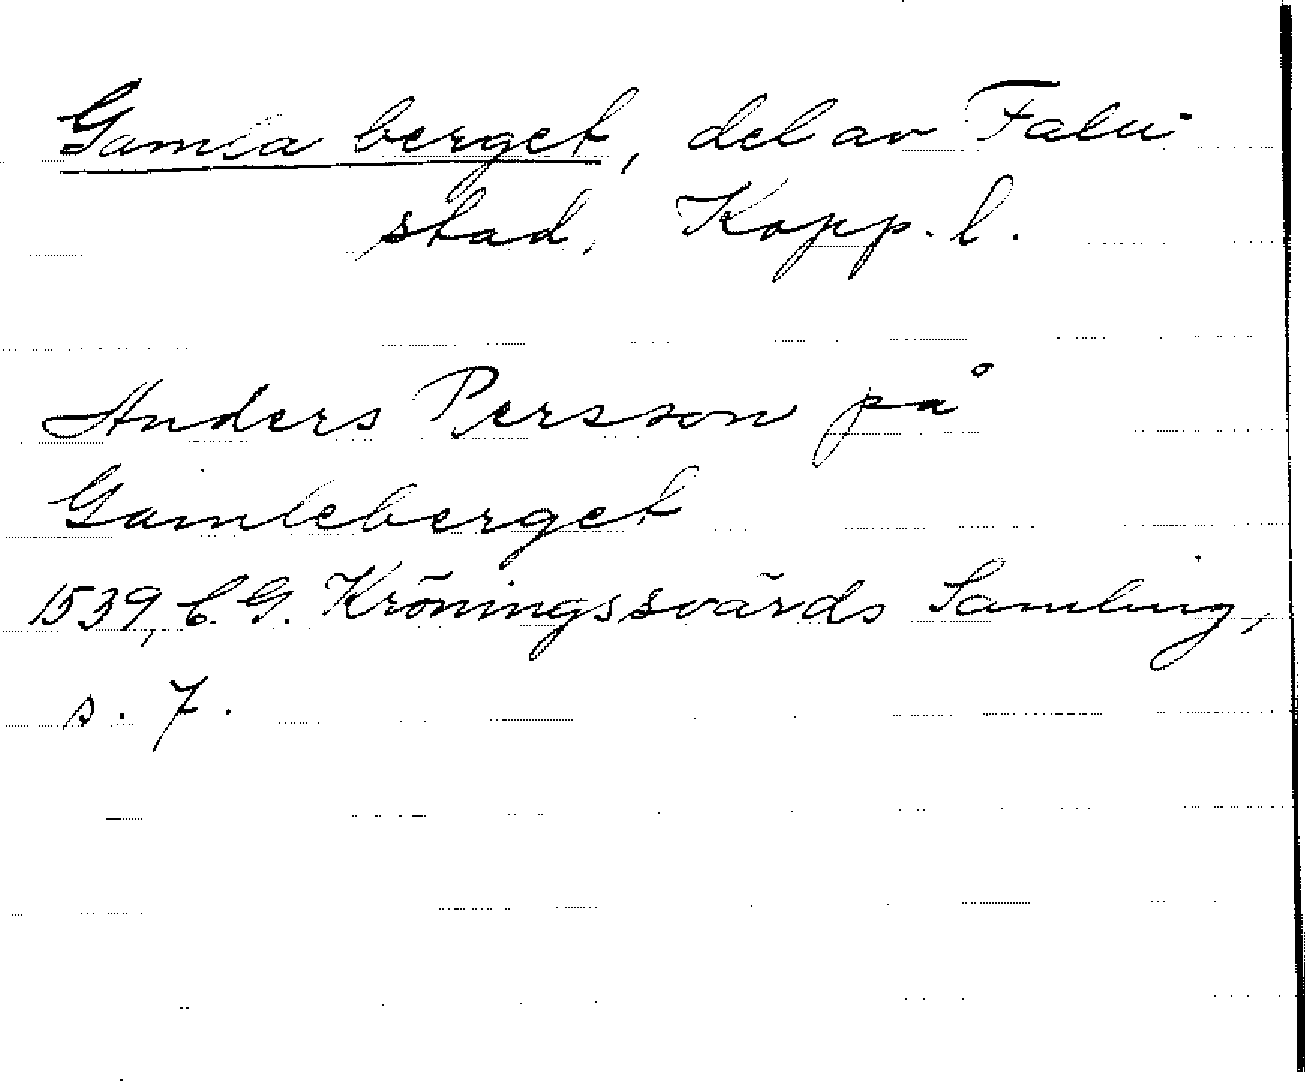 Gamla berget, del av Falu
stad, Kopp. l.
Anders Persson på
Gamleberget
1539, C. G. Kröningssvärds Samling,
s. 7.